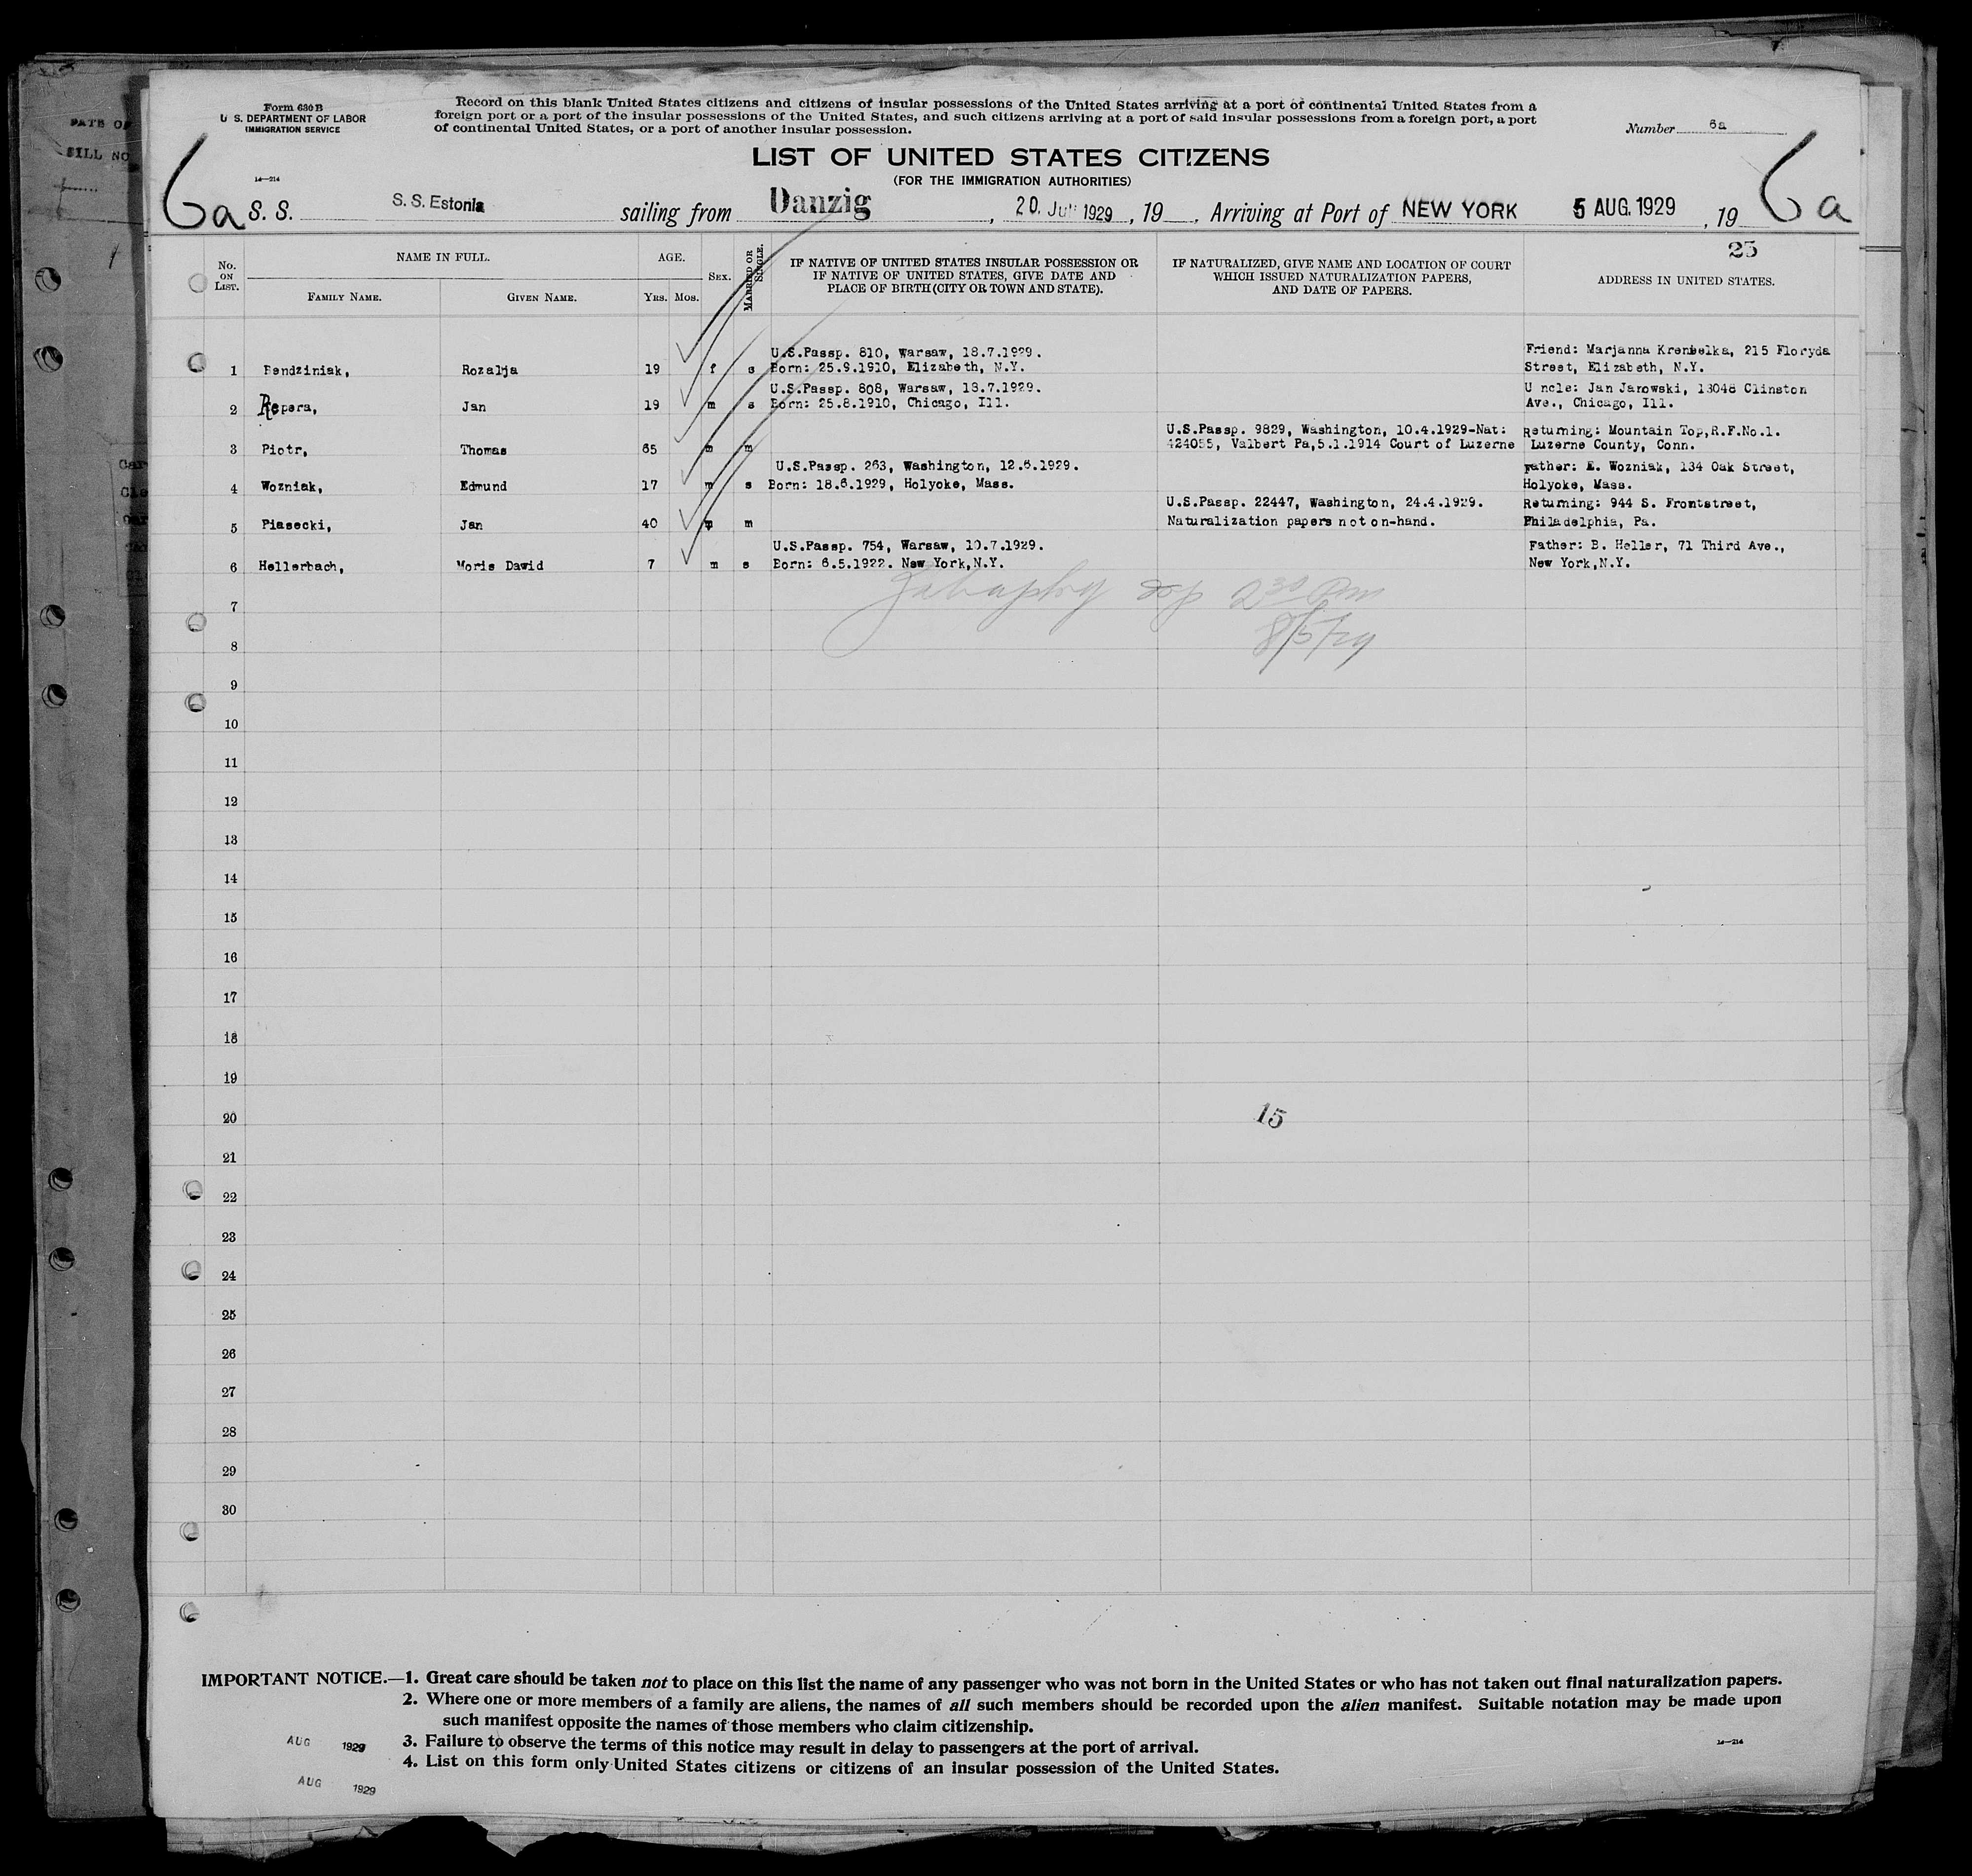 PATE OF
BILL NO
Form 630 B
U S. DEPARTMENT OF LABOR
IMMIGRATION SERVICE
14—214
Record on this blank United States citizens and citizens of insular possessions of the United States arriving at a port of continental United States from a
foreign port or a port of the insular possessions of the United States, and such citizens arriving at a port of said insular possessions from a foreign port, a port
of continental United States, or a port of another insular possession.
Number 6a
LIST OF UNITED STATES CITIZENS
(FOR THE IMMIGRATION AUTHORITIES)
6a S. S. S. S. Estonia sailing from Danzig, 20. Jul 1929, 19 , Arriving at Port of NEW YORK 5 AUG. 1929, 19 6a
25
No. ON LIST.
NAME IN FULL.
FAMILY NAME.
GIVEN NAME.
AGE.
YRS. MOS.
SEX.
MARRIED OR SINGLE.
IF NATIVE OF UNITED STATES INSULAR POSSESSION OR
IF NATIVE OF UNITED STATES, GIVE DATE AND
PLACE OF BIRTH (CITY OR TOWN AND STATE).
IF NATURALIZED, GIVE NAME AND LOCATION OF COURT
WHICH ISSUED NATURALIZATION PAPERS,
AND DATE OF PAPERS.
ADDRESS IN UNITED STATES.
U.S.Passp. 810, Warsaw, 18.7.1929. Friend: Marjanna Krembelka, 215 Floryda
1 Bendziniak, Rozalja 19 f s Born: 25.9.1910, Elizabeth, N.Y. Street, Elizabeth, N.Y.
U.S.Passp. 808, Warsaw, 18.7.1929. U ncle: Jan Jarowski, 13048 Clinston
2 Repera, Jan 19 m s Born: 25.8.1910, Chicago, Ill. Ave., Chicago, Ill.
U.S.Passp. 9829, Washington, 10.4.1929-Nat: Returning: Mountain Top,R.F.No.1.
3 Piotr, Thomas 65 m m 424055, Valbert Pa,5.1.1914 Court of Luzerne Luzerne County, Conn.
U.S.Passp. 263, Washington, 12.6.1929. Father: E. Wozniak, 134 Oak Street,
4 Wozniak, Edmund 17 m s Born: 18.6.1929, Holyoke, Mass. Holyoke, Mass.
U.S.Passp. 22447, Washington, 24.4.1929. Returning: 944 S. Frontstreet,
5 Piasecki, Jan 40 m m Naturalization papers not on-hand. Philadelphia, Pa.
U.S.Passp. 754, Warsaw, 10.7.1929. Father: B. Heller, 71 Third Ave.,
6 Hellerbach, Moris Dawid 7 m s Born: 6.5.1922. New York,N.Y. New York,N.Y.
7
8/5/29
8
9
10
11
12
13
14
15
16
17
18
19
20
15
21
22
23
24
25
26
27
28
29
30
IMPORTANT NOTICE.—1. Great care should be taken not to place on this list the name of any passenger who was not born in the United States or who has not taken out final naturalization papers.
2. Where one or more members of a family are aliens, the names of all such members should be recorded upon the alien manifest. Suitable notation may be made upon
such manifest opposite the names of those members who claim citizenship.
3. Failure to observe the terms of this notice may result in delay to passengers at the port of arrival.
4. List on this form only United States citizens or citizens of an insular possession of the United States.
AUG 1929
14—214
AUG 1929